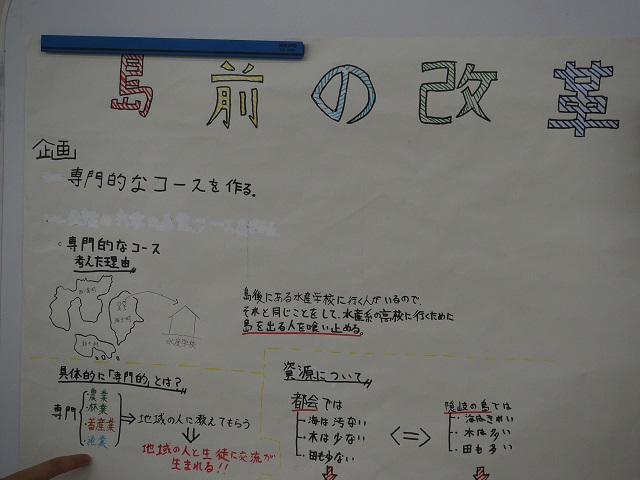 島前の改革
企画
専門的なコースを作る。
。専門的なコース
考えた理由
西ノ島町
海士町
知夫村
水産学校
島後にある水産学校に行く人がいるので、
それと同じことをして、水産系の高校に行くために
島を出る人を喰い止める。
具体的に「専門的」とは?
専門
農業
林業
畜産業
漁業
⇒地域の人に教えてもらう
地域の人と生徒に交流が
生まれる!!
資源について
都会では
海は汚ない
木は少ない
田も少ない
<=>
隠岐の島では
海はきれい
木は多い
田も多い